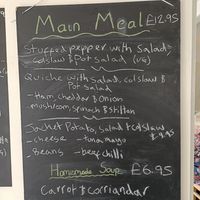 Main Meal £12.95
Stuffed pepper with Salad
Colslaw & Pot Salad (VG)
Quiche with Salad, colslaw &
Pot Salad
- Ham, cheddar & Onion
mushroom, spinach & Stilton
Jacket Potato, Salad & Colslaw
£9.95
- cheese - tuna mayo
Beans - beef chilli
Homemade Soup £6.95
Carrot & corriandar